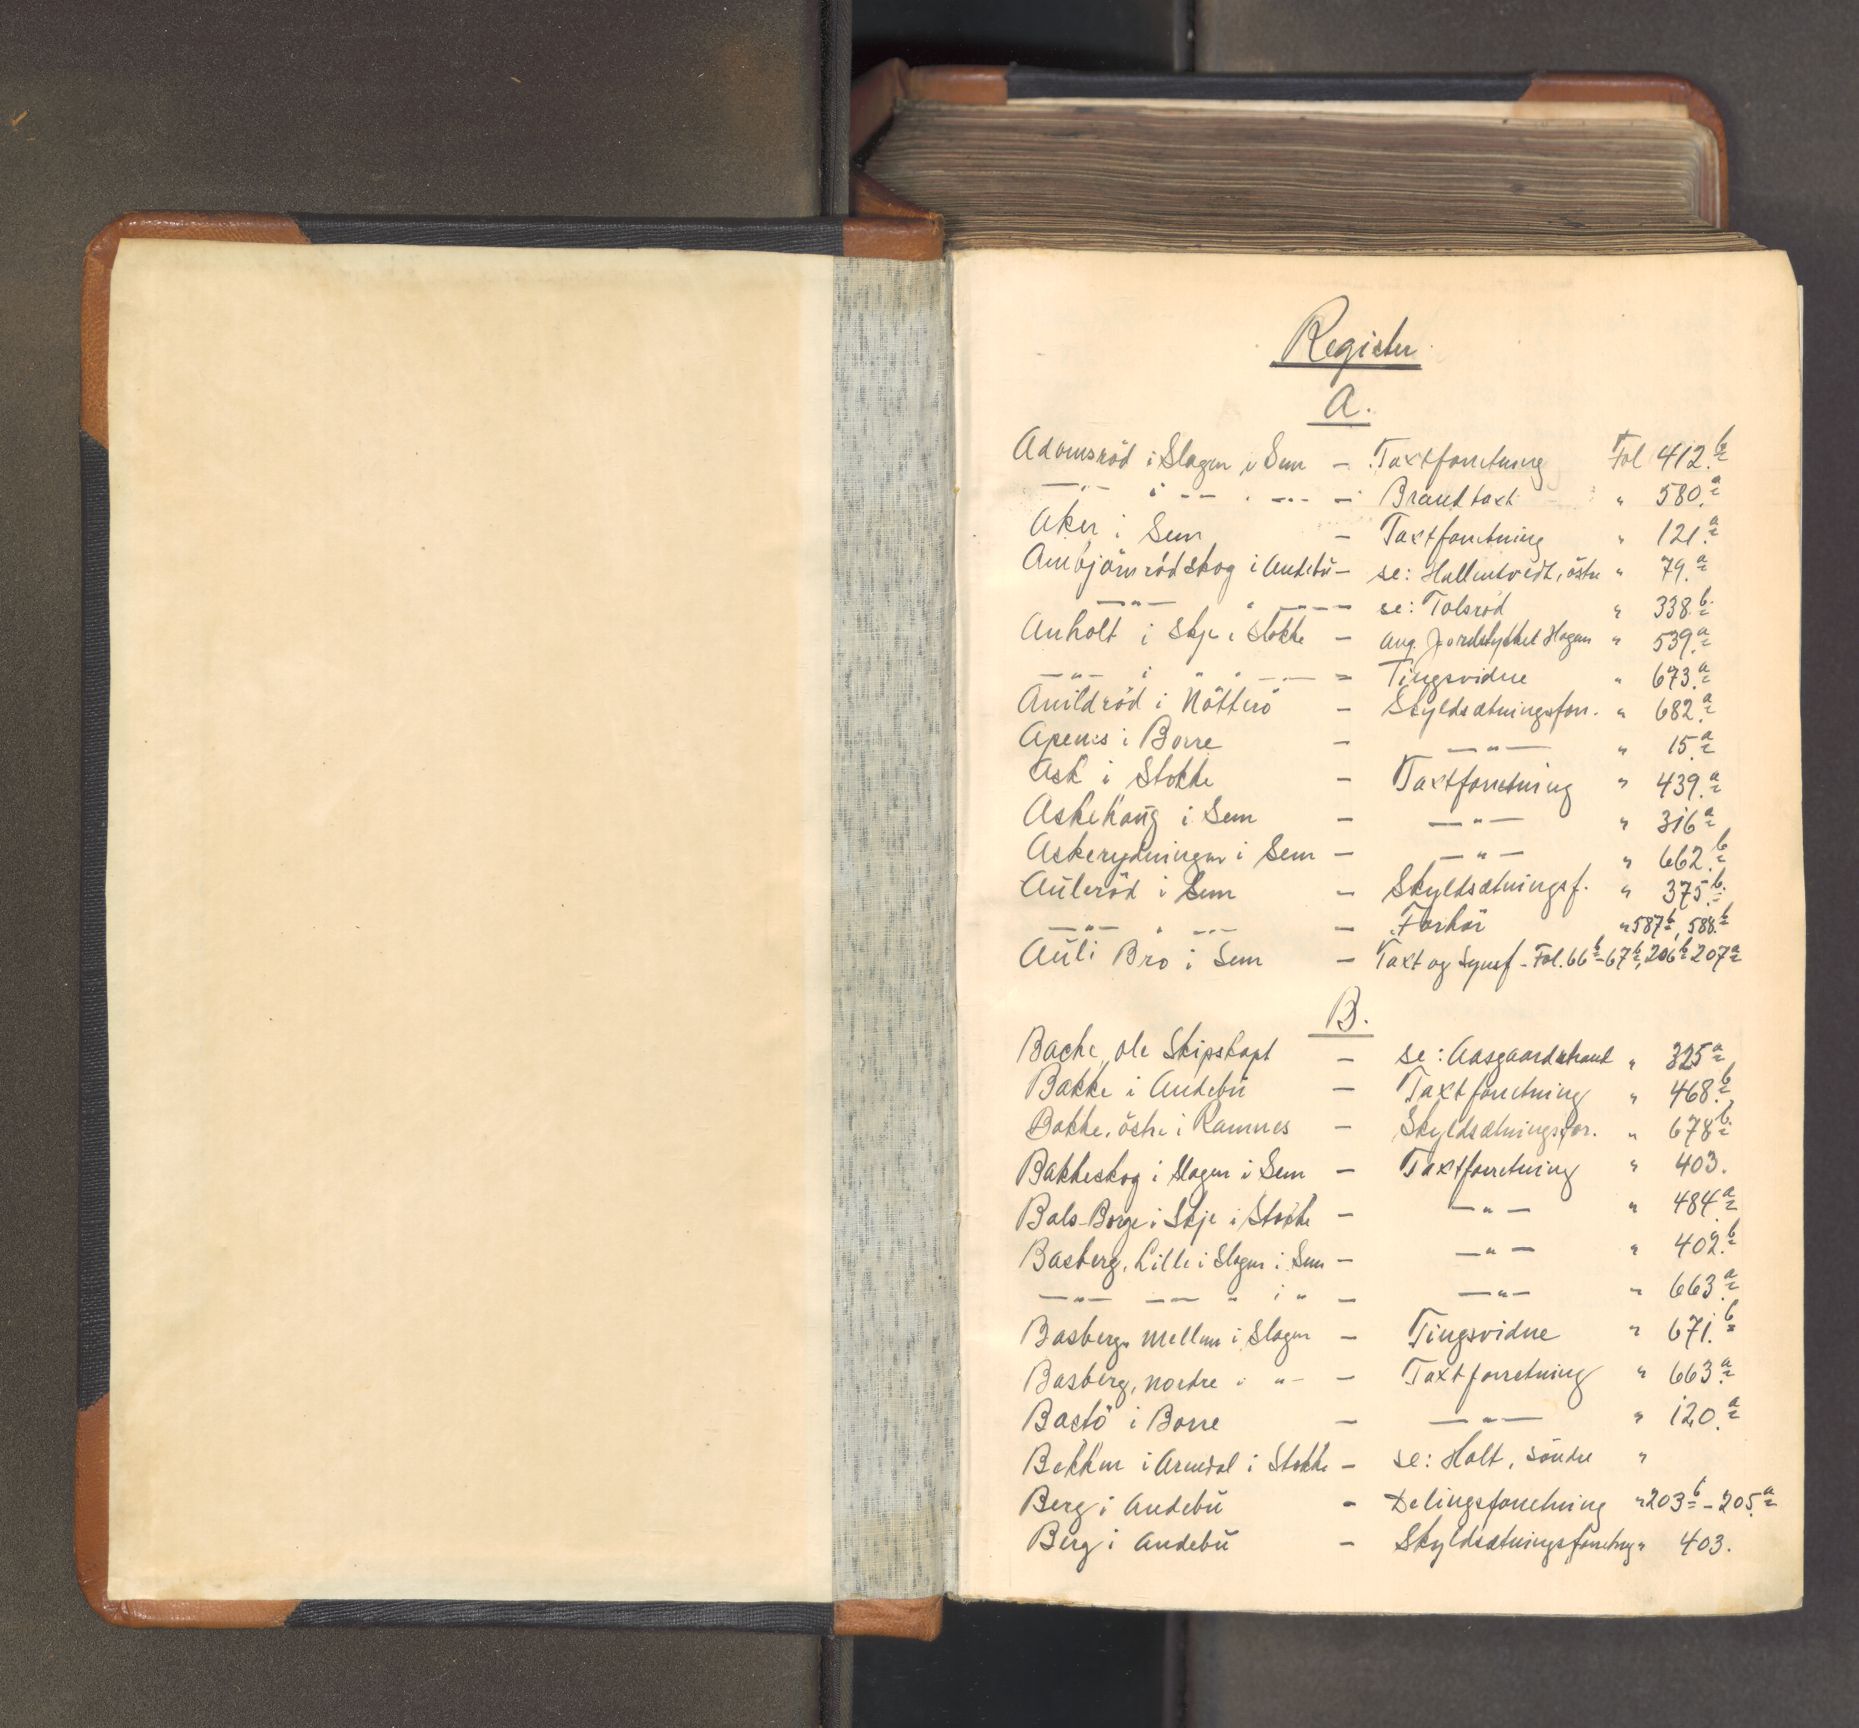 Register
A.
Adamsröd i Slagen i Sem – Taxtforretning Fol 412.b
—"— i — " — . — " — – Brandtaxt " 580.a
Aker i Sem – Taxtforretning " 121.a
Ambjörnrödskog i Andebu – se: Hallentvedt, östre " 79.a
—"— " —"— – se: Tolsröd " 338.b
Anholt i Skje i Stokke – ang. Jordstykket Hagen " 539.a
—"— i " " " — – Tingsvidne " 673.a
i Nötterö – Skyldsætningsforr. " 682.a
Apenes i Borre – —"— " 15.a
Ask i Stokke – Taxtforretning " 439.a
Askehaug i Sem – —"— " 316.a
Askerydningen i Sem – —"— " 662.b
Auleröd i Sem – Skyldsætningsf. " 375.b
—"— " —"— – Forhör " 587b, 588.b
Auli Bro i Sem – Taxt og Synsf – Fol. 66b–67b, 206b 207a
B.
Bache, Ole Skipskapt – se: Aasgaardstrand " 325a
Bakke i Andebu – Taxtforretning " 468.b
Bakke, östre i Ramnes – Skyldsætningsfor. " 678b
Bakkeskog i Slagen i Sem – Taxtforretning " 403.
Bals-Borge i Skje i Stokke – —"— " 484a
Basberg, Lille i Slagen i Sem – —"— " 402.b
—"— —— " i " – —"— " 663.a
Basberg, mellem i Slagen – Tingsvidne " 671.b
Basberg, nordre i " – – Taxtforretning " 663.a
Bastö i Borre – —"— " 120.a
Bekken i Arendal i Stokke – se: Holt, söndre "
Berg i Andebu – Delingsforretning " 203b – 205.a
Berg i Andebu – Skyldsætningsforretng " 403.